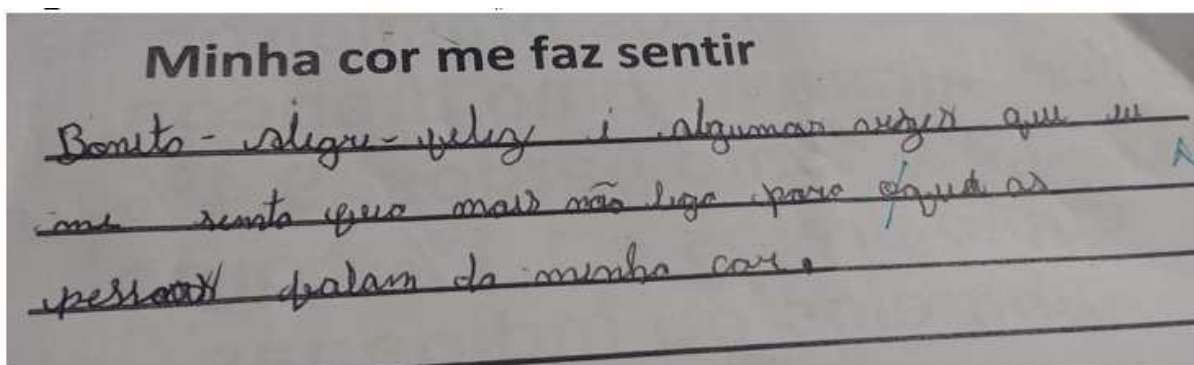 Minha cor me faz sentir
Bonito - alegre - feliz i algumas vezes que eu
me sinto feio mais não ligo para o que as
pessoas falam da minha cor.